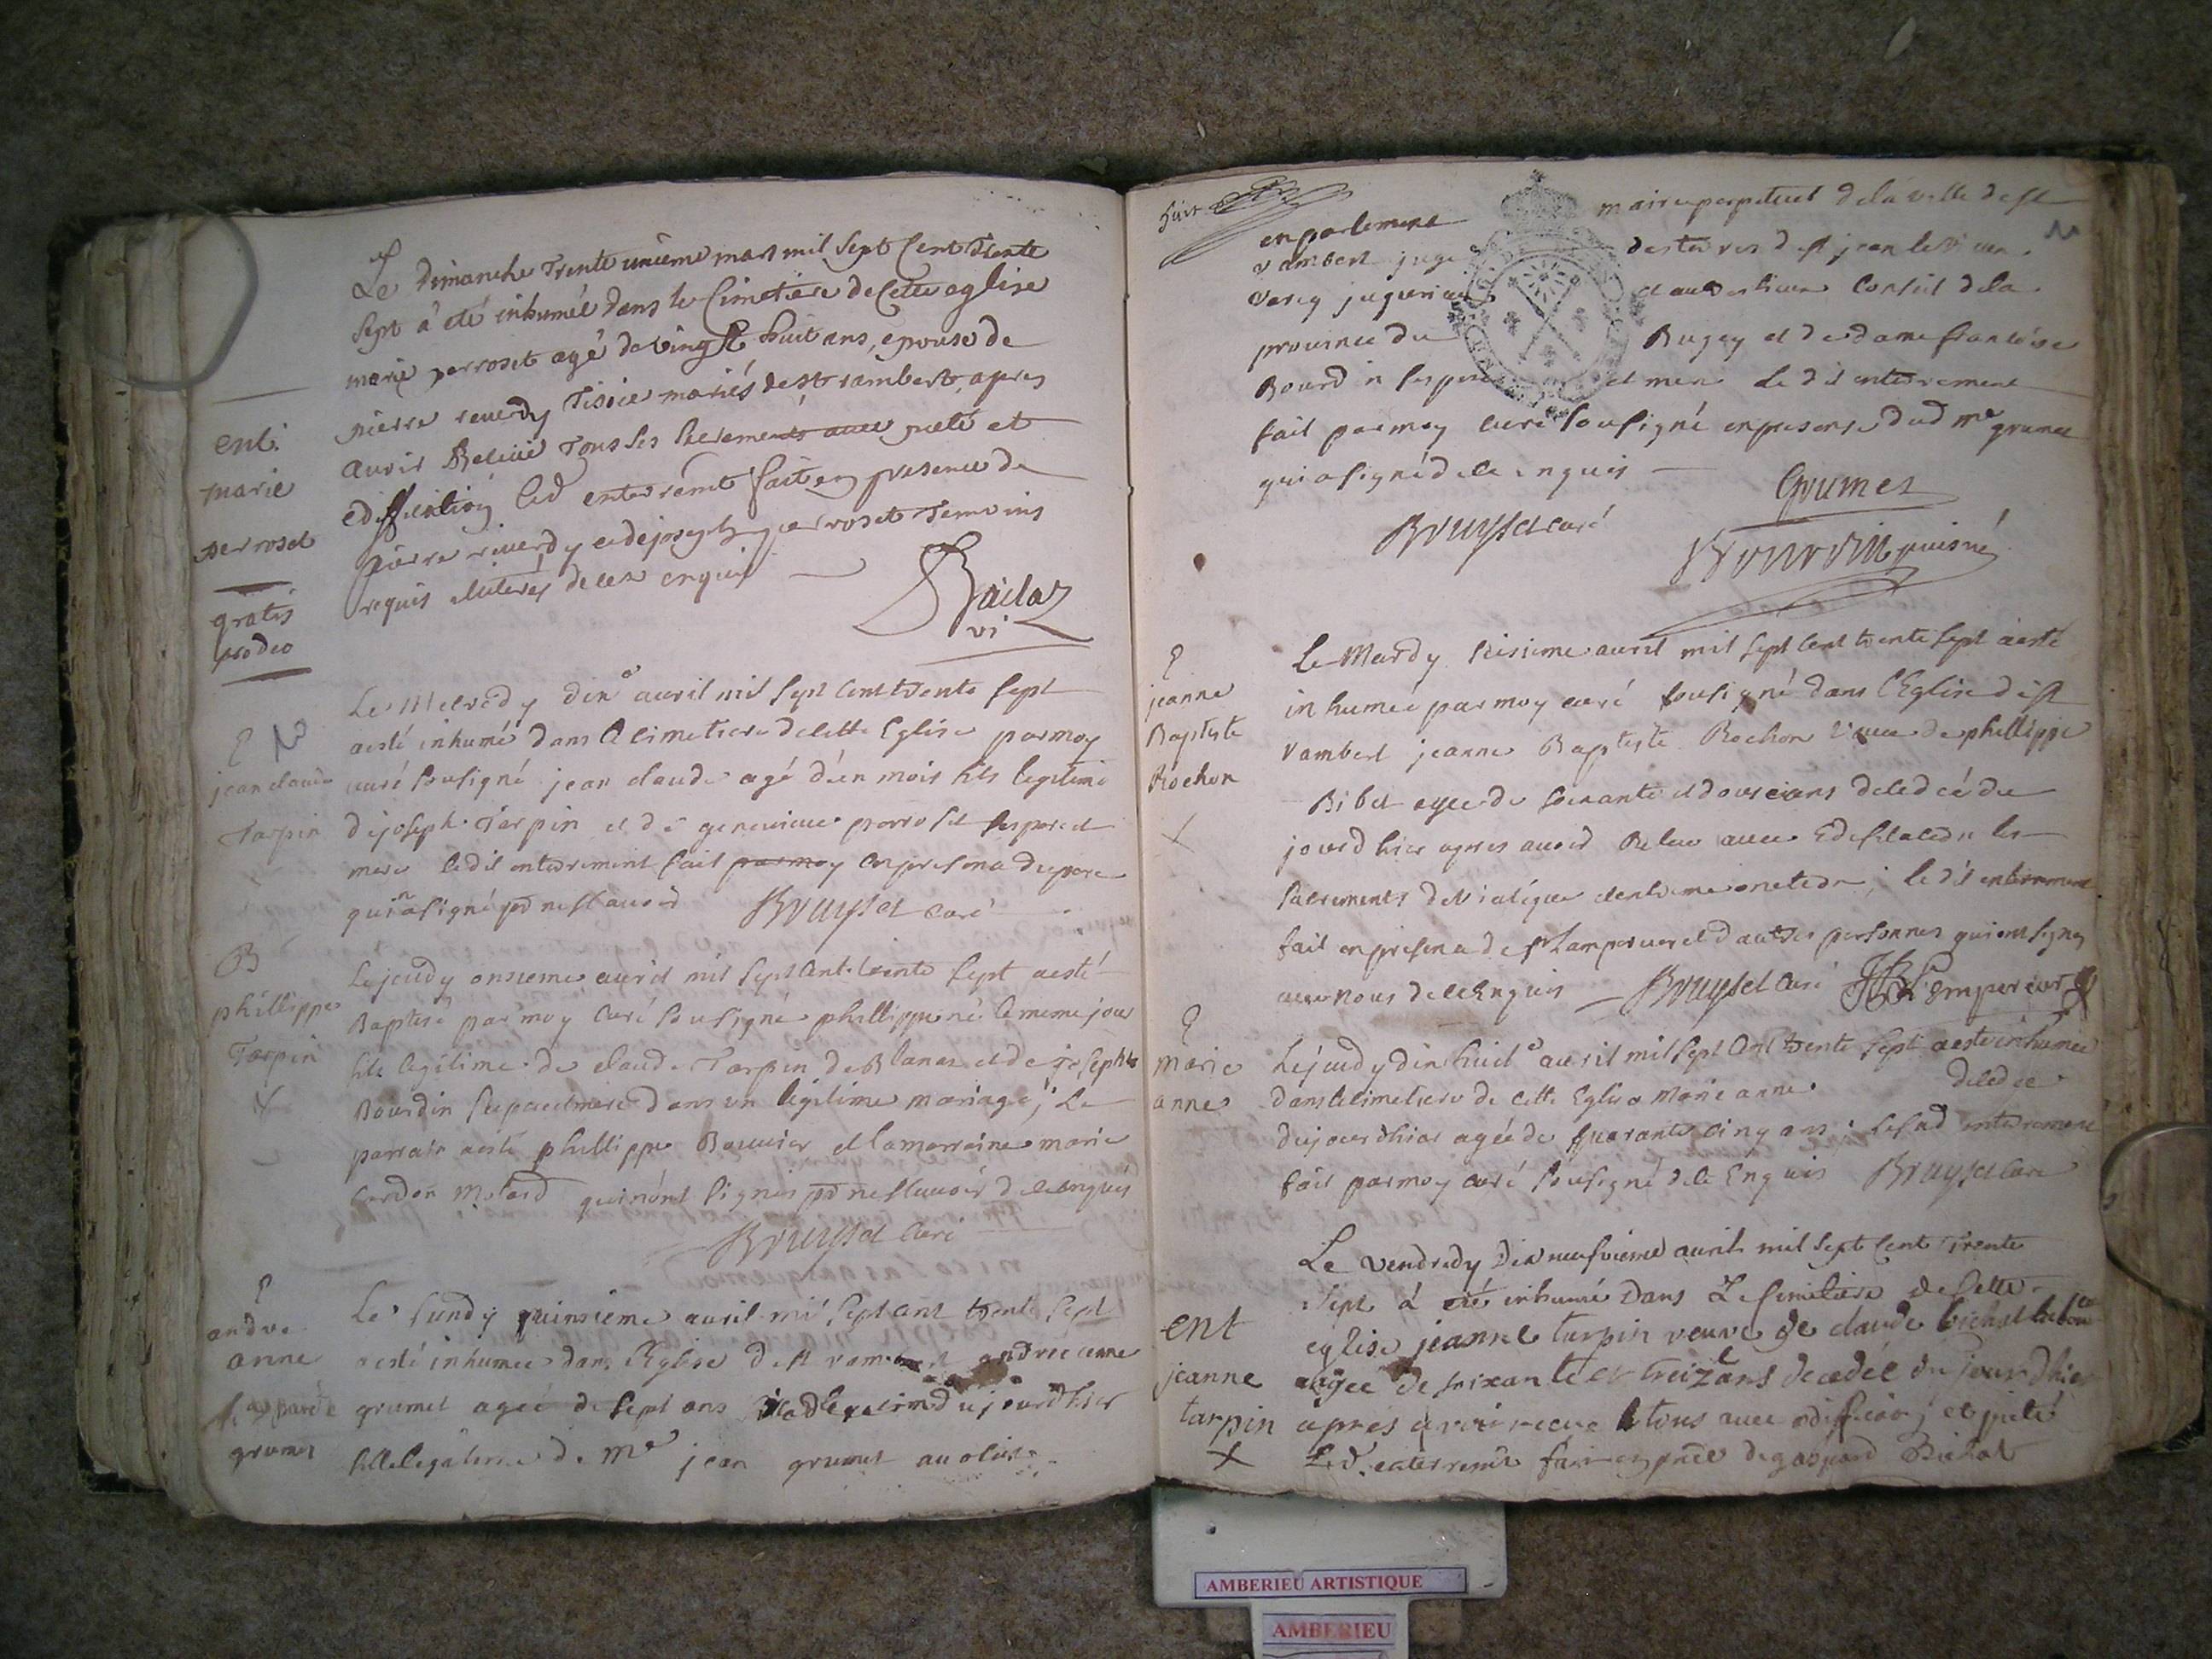 Le dimanche Trente unième mars mil Sept Cent Trente
Sept à eté inhumée dans le Cimetière de Cette eglise
marie perroset agé de vingt huit ans, epouse de
pierre reverdy Tisoie mariés de st rambert, apres
avoir Receüe Tous les Sacrements avec pieté et
ediffication led enterremt fait en presence de
pierre reverdy et de joseph perroset Temoins
requis illiteres de ce enquis
Bailaz
vi
ent.
marie
perroset
gratis
pro deo
Le Mecredy dix e avril mil Sept Cent trente Sept
aesté inhumé dans le cimetiere de cette Eglise par moy
curé Sousigné jean claude agé d'un mois fils legitime
de joseph Tarpin et de genevieve perroset ses pere et
mere ledit enterrement fait par moy en presence du pere
qui n a signé pr ne scavoir Bruyset curé
E
jean claude
Tarpin
Le jeudy onsieme avril mil Sept Cent trente Sept aesté
Baptisé par moy Curé Sousigné phillippe né le meme jour
fils legitime de claude Tarpin de Blanaz et de josephte
Bourdin Ses pere et mere dans un legitime mariage; Le
parrain aesté phillippe Bouvier et la marraine marie
qui n'ont Signés pr ne scavoir de ce enquis
Bruyset Curé
B
phillippe
Tarpin
X
Le Lundy quinsieme avril mil Sept Cent trente Sept
aesté inhumée dans l'Eglise de st rambert andrée anne
grumet agée de Sept ans decedée du jourdhier
fille legitime de Me jean grumet avocat
E
andre
anne
gasparde
grumet
huit
en parlement maire perpetuel de la ville de st
rambert juge des terres de st jean le vieux
Varey jujurieux et autres lieux Conseil de la
province du Bugey et de dame francoise
Bourdin ses pere et mere le dit enterrement
fait par moy curé Sousigné en presence dud Me grumet
qui a signé de ce enquis
Grumet
Bruyset curé
puisné
Le Mardy Seisieme avril mil Sept Cent trente Sept aesté
inhumée par moy curé Sousigné dans l'Eglise de st
rambert jeanne Baptiste Rochon veuve de phillippe
Bibet agée de soixante et douse ans decedée du
jourd hier apres avoir Receu avec Edification les
Sacrements de Viatique et extreme onction; le dit enterrement
fait en presence de sr Lampereur et d'autres personnes qui ont signez
avec nous de ce Enquis Bruyset Curé L'empereur
E
jeanne
Baptiste
Rochon
X
Le jeudy dix huit e avril mil Sept Cent trente Sept aesté inhumée
dans le cimetiere de cette Eglise Marie anne decedée
du jourdhier agée de quarante cinq ans; le sud enterrement
fait par moy curé Sousigné de ce Enquis Bruyset Curé
E
Marie
anne
Le vendredy Dix neufvieme avril mil Sept Cent Trente
Sept à eté inhumée Dans Le Cimetiere de Cette
eglise jeanne tarpin veuve de claude
agée de soixante et treize ans decedée du jour d'hier
apres avoir receue tous avec edification et pieté
Led. enterremt fait en pnce de gaspard Bichat
ent
jeanne
tarpin
X
AMBERIEU ARTISTIQUE
AMBERIEU